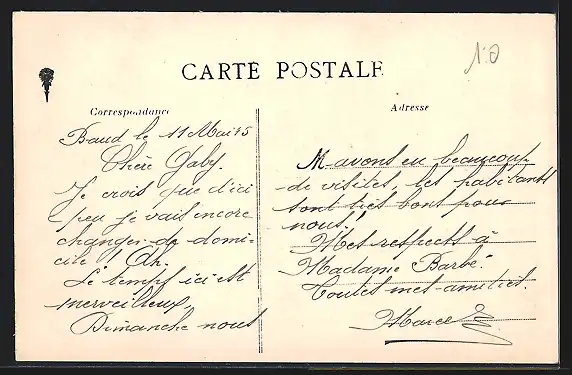 CARTE POSTALE
Correspondance
Baud le 11 Mai 15
Chère Gaby.
Je crois que d'ici
peu je vais encore
changer de domi-
cile ! Ah.
Le temps ici est
merveilleux,
Dimanche nous
Adresse
avons eu beaucoup
de visites, les habitants
sont très bons pour
nous!
Mes respects à
Madame Barbé.
Toutes mes amitiés.
Marcel